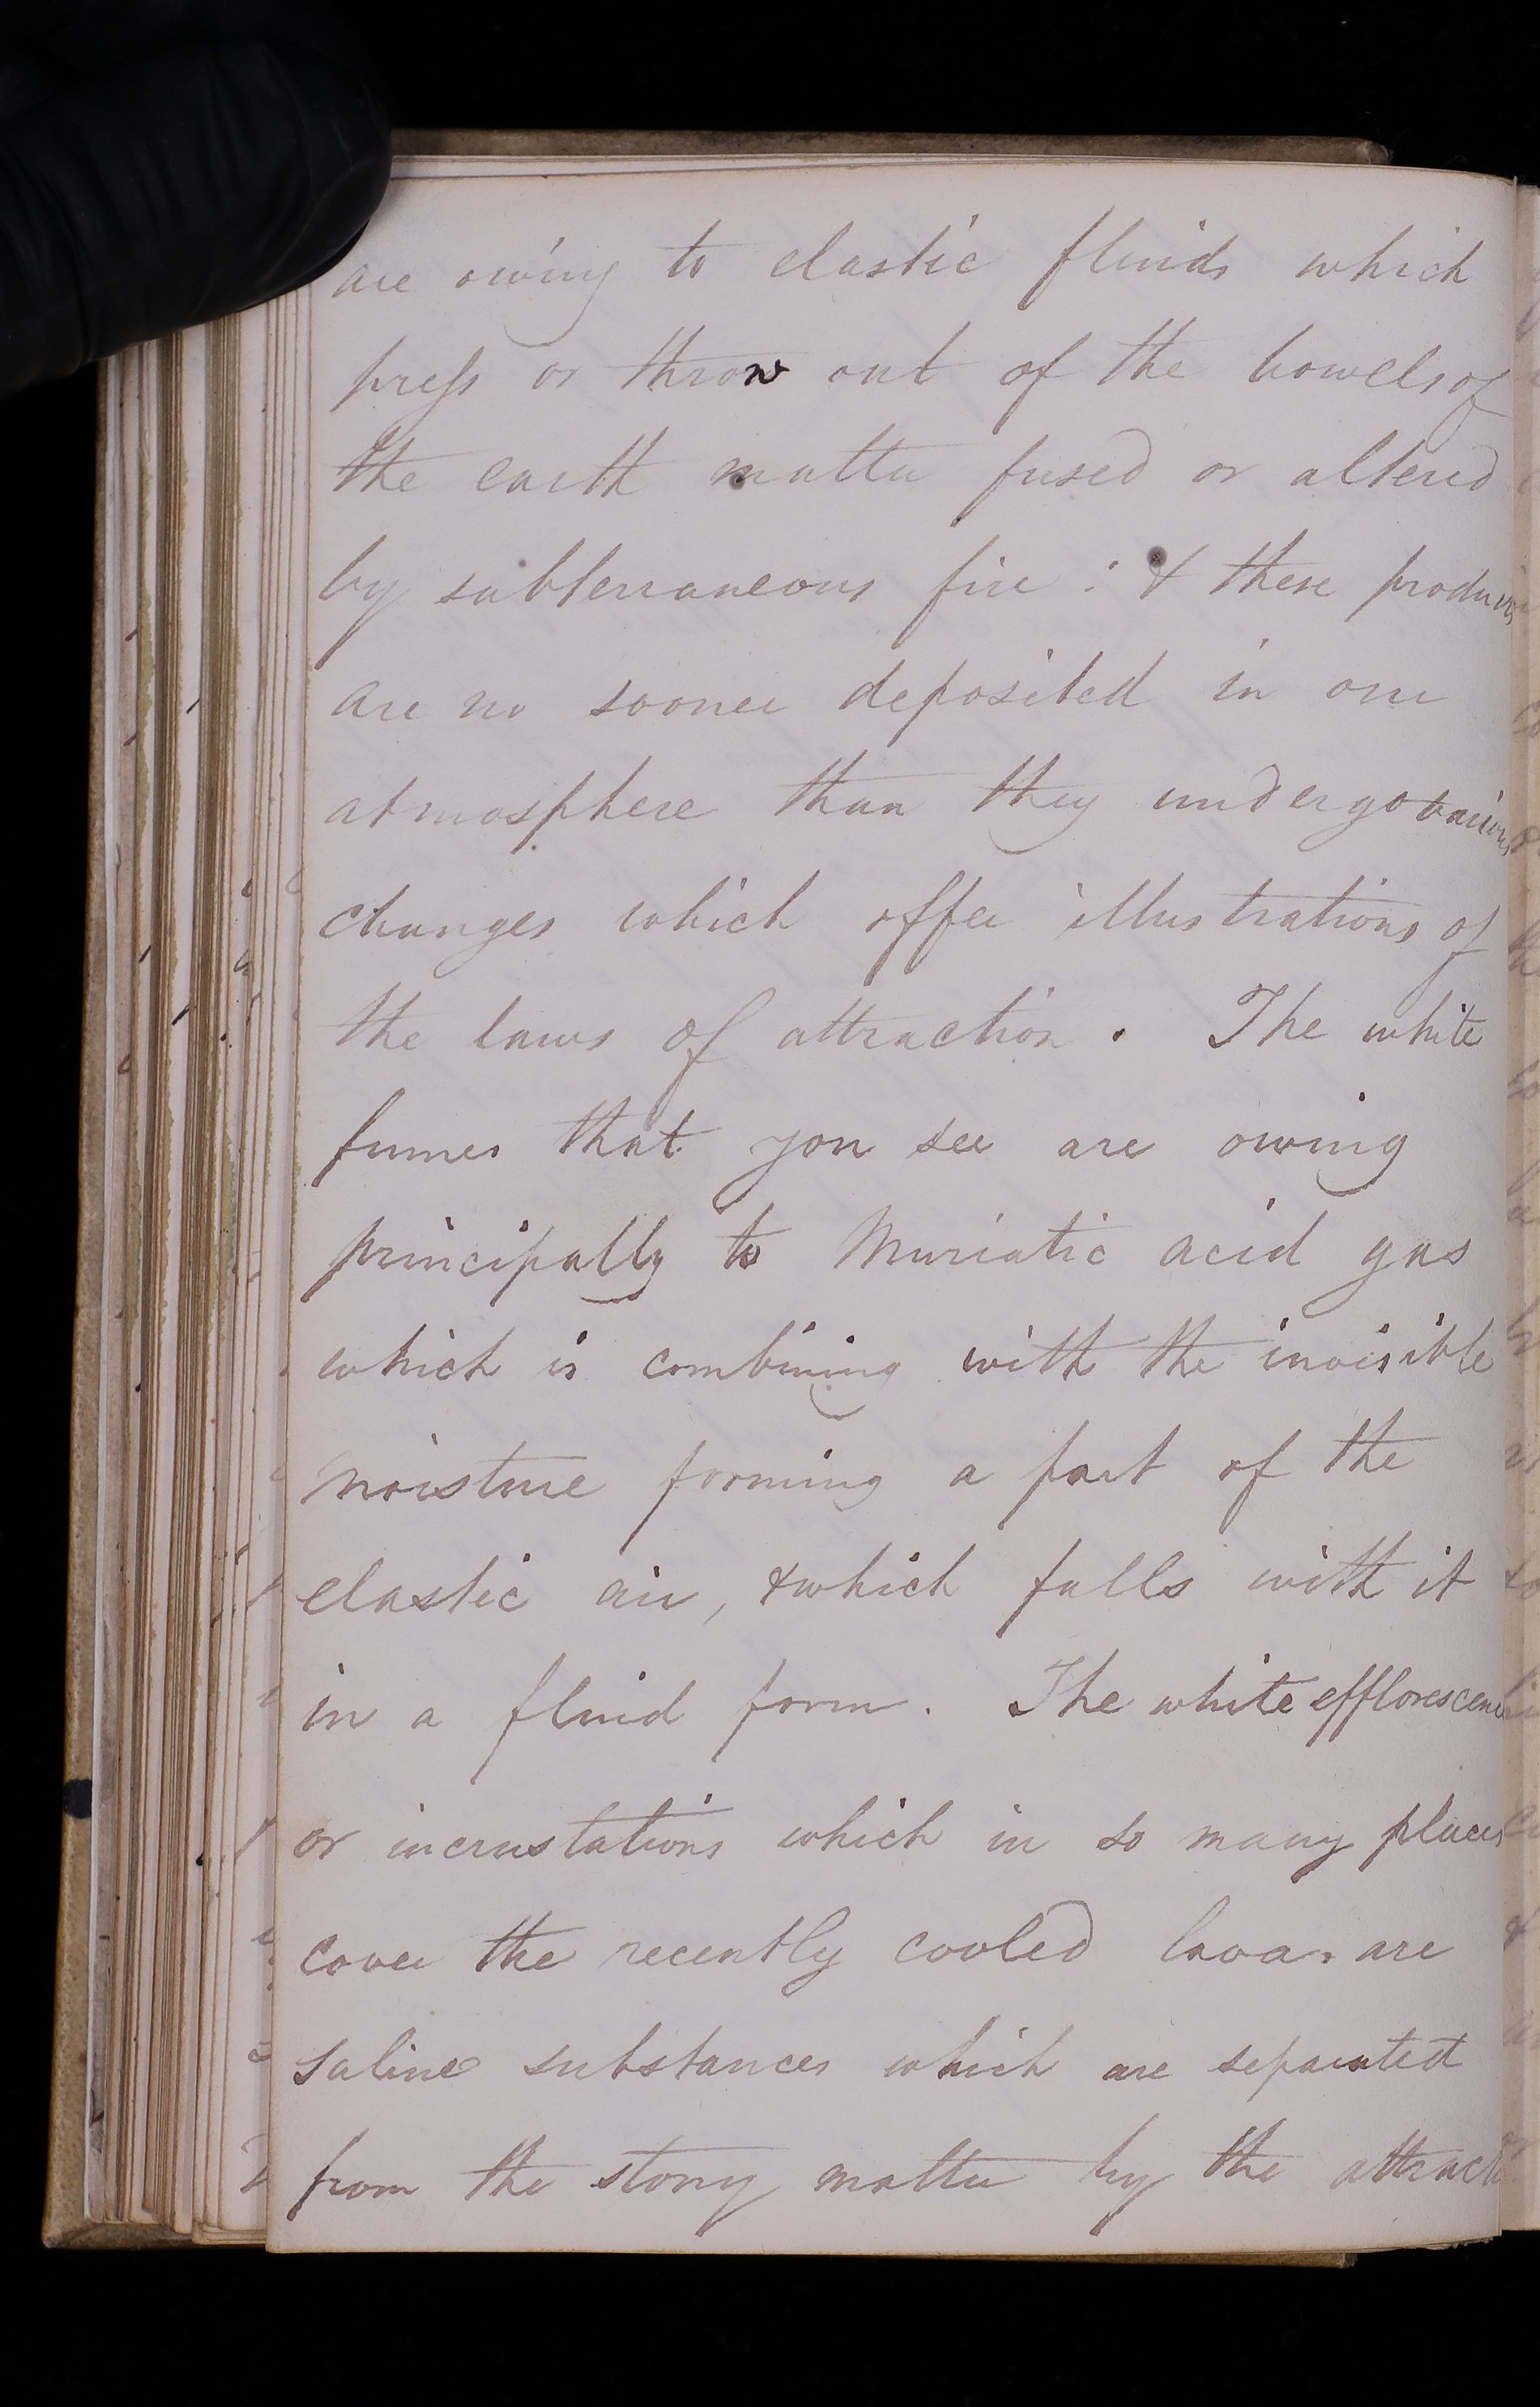 are owing to elastic fluids which
press or throw out of the bowels of
the earth matter fused or altered
by subterraneous fire : & these
are no sooner deposited in our
atmosphere than they undergo various
changes which offer illustrations of
the laws of attraction . The white
fumes that you see are owing
principally to Muriatic acid gas
which is combining with the invisible
moisture forming a part of the
elastic air, & which falls with it
in a fluid form . The white efflorescence
or incrustations which in so many places
cover the recently cooled lava are
saline substances which are separated
from the stony matter by the